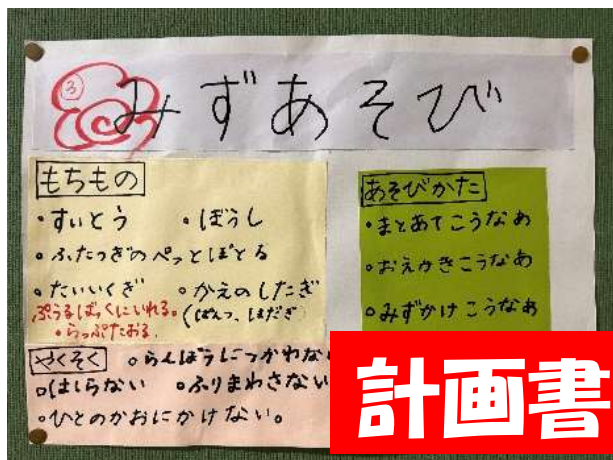 ③
みずあそび
もちもの
・すいとう ・ぼうし
・ふたつきのぺっとぼとる
・たいいくぎ ・かえのしたぎ
ぷうるばっくにいれる。
(ぱんつ、はだぎ)
・らっぷたおる
あそびかた
・まとあてこうなあ
・おえかきこうなあ
・みずかけこうなあ
やくそく ・らんぼうにつかわない
・はしらない ・ふりまわさない
・ひとのかおにかけない。
計画書